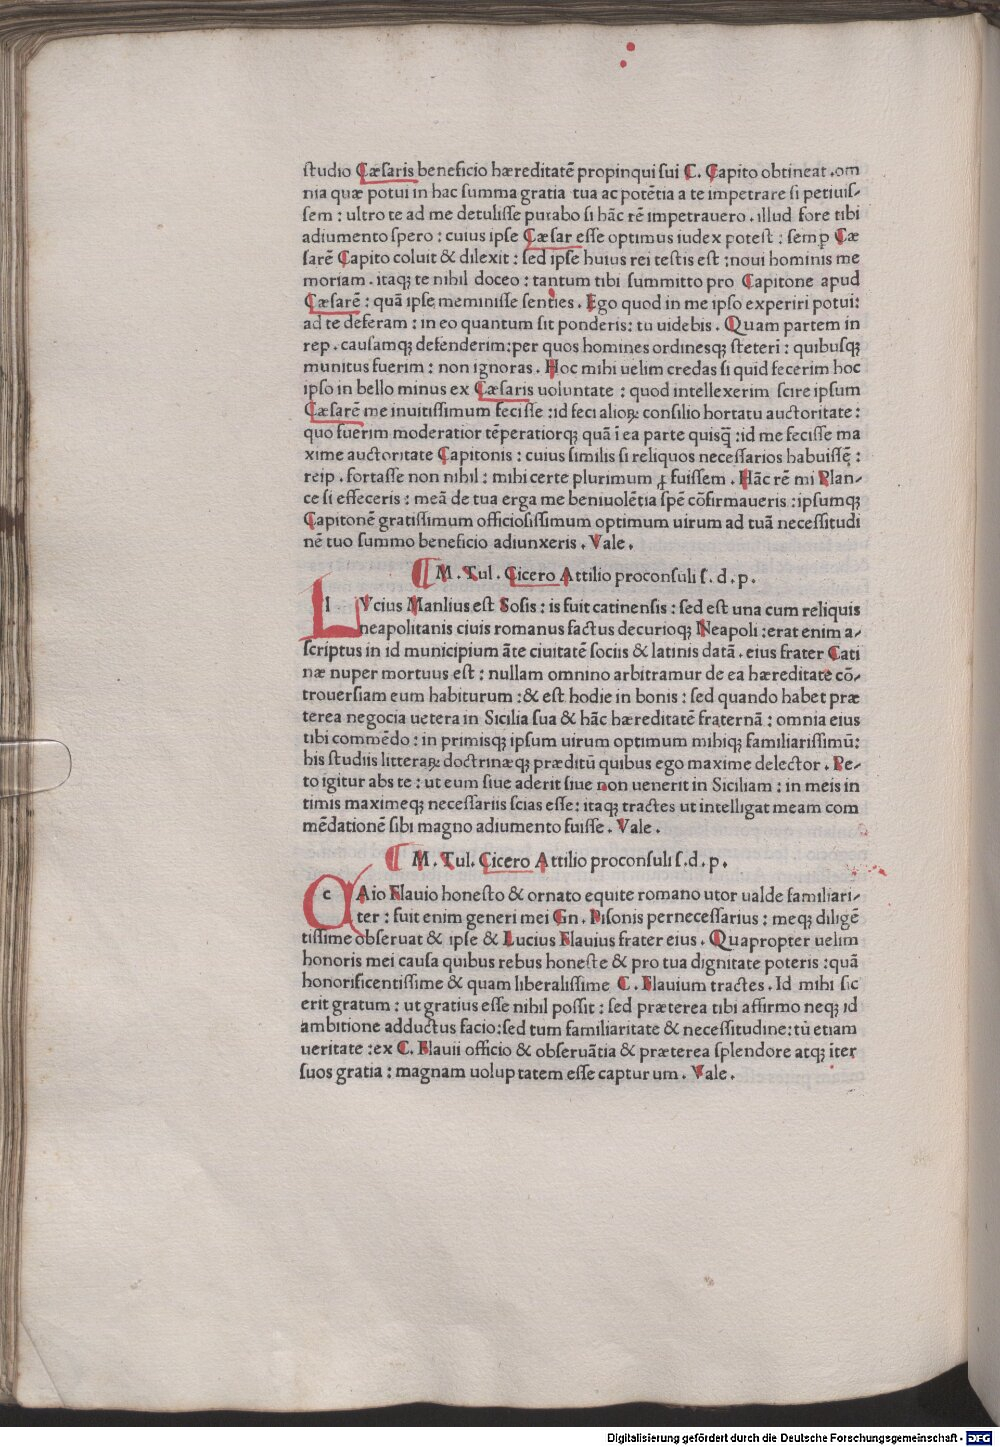 ſtudio Cæſaris beneficio hæreditatē propinqui sui C. Capito obtineat .om
nia quæ potui in hac ſumma gratia tua ac potētia a te impetrare ſi petiuiſ-
ſem : ultro te ad me detuliſſe putabo ſi hāc rē impetrauero . illud fore tibi
adiumento ſpero : cuius ipſe Cæſar eſſe optimus iudex poteſt : ſemꝑ Cæ
ſarē Capito coluit & dilexit : ſed ipſe huius rei teſtis eſt : noui hominis me
moriam . itaqꝫ te nihil doceo : tantum tibi ſummitto pro Capitone apud
Cæſarē : quā ipſe meminiſſe ſenties . Ego quod in me ipſo experiri potui:
ad te deferam : in eo quantum ſit ponderis: tu uidebis . Quam partem in
rep . cauſamqꝫ defenderim:per quos homines ordinesqꝫ ſteterī : quibuſqꝫ
munitus fuerim : non ignoras . Hoc mihi uelim credas ſi quid fecerim hoc
ipſo in bello minus ex Cæſaris uoluntate : quod intellexerim ſcire ipſum
Cæſarē me inuitiſſimum feciſſe : id feci alioꝝ conſilio hortatu auctoritate :
quo fuerim moderatior tēperatiorqꝫ quā ī ea parte quisq̄ : id me feciſſe ma
xime auctoritate Capitonis : cuius ſimilis ſi reliquos neceſſarios habuiſſē :
reip . fortaſſe non nihil : mihi certe plurimum ꝓfuiſſem . Hāc rē mi Plan-
ce ſi effeceris : meā de tua erga me beniuolētia ſpē cōfirmaueris : ipſumqꝫ
Capitonē gratiſſimum officioſiſſimum optimum uirum ad tuā neceſſitudi
nē tuo ſummo beneficio adiunxeris . Vale .
M . Tul . Cicero Attilio proconſuli ſ . d . p .
l Vcius Manlius eſt Soſis : is fuit catinenſis : ſed eſt una cum reliquis
neapolitanis ciuis romanus factus decurioqꝫ Neapoli : erat enim a-
ſcriptus in id municipium āte ciuitatē ſociis & latinis datā . eius frater Cati
næ nuper mortuus eſt : nullam omnino arbitramur de ea hæreditate cō-
trouerſiam eum habiturum : & eſt hodie in bonis : ſed quando habet præ
terea negocia uetera in Sicilia ſua & hāc hæreditatē fraternā : omnia eius
tibi commēdo : in primisqꝫ ipſum uirum optimum mihiqꝫ familiariſſimū:
his ſtudiis litteraꝝ doctrinæqꝫ præditū quibus ego maxime delector . Pe-
to igitur abs te : ut eum ſiue aderit ſiue non uenerit in Siciliam : in meis in
timis maximeqꝫ neceſſariis ſcias eſſe : itaqꝫ tractes ut intelligat meam com
mēdationē ſibi magno adiumento fuiſſe . Vale .
M . Tul. Cicero Attilio proconſuli ſ . d . p .
c Aio Flauio honeſto & ornato equite romano utor ualde familiari-
ter : fuit enim generi mei Gn . Piſonis perneceſſarius : meqꝫ diligē
tiſſime obſeruat & ipſe & Lucius Flauius frater eius . Quapropter uelim
honoris mei cauſa quibus rebus honeſte & pro tua dignitate poteris : quā
honorificentiſſime & quam liberaliſſime C . Flauium tractes . Id mihi ſic
erit gratum : ut gratius eſſe nihil poſſit : ſed præterea tibi affirmo neqꝫ id
ambitione adductus facio:ſed tum familiaritate & neceſſitudine: tū etiam
ueritate : ex C. Flauii officio & obſeruātia & præterea ſplendore atqꝫ īter
ſuos gratia : magnam uoluptatem eſſe capturum . Vale .
Digitalisierung gefördert durch die Deutsche Forschungsgemeinschaft - DFG